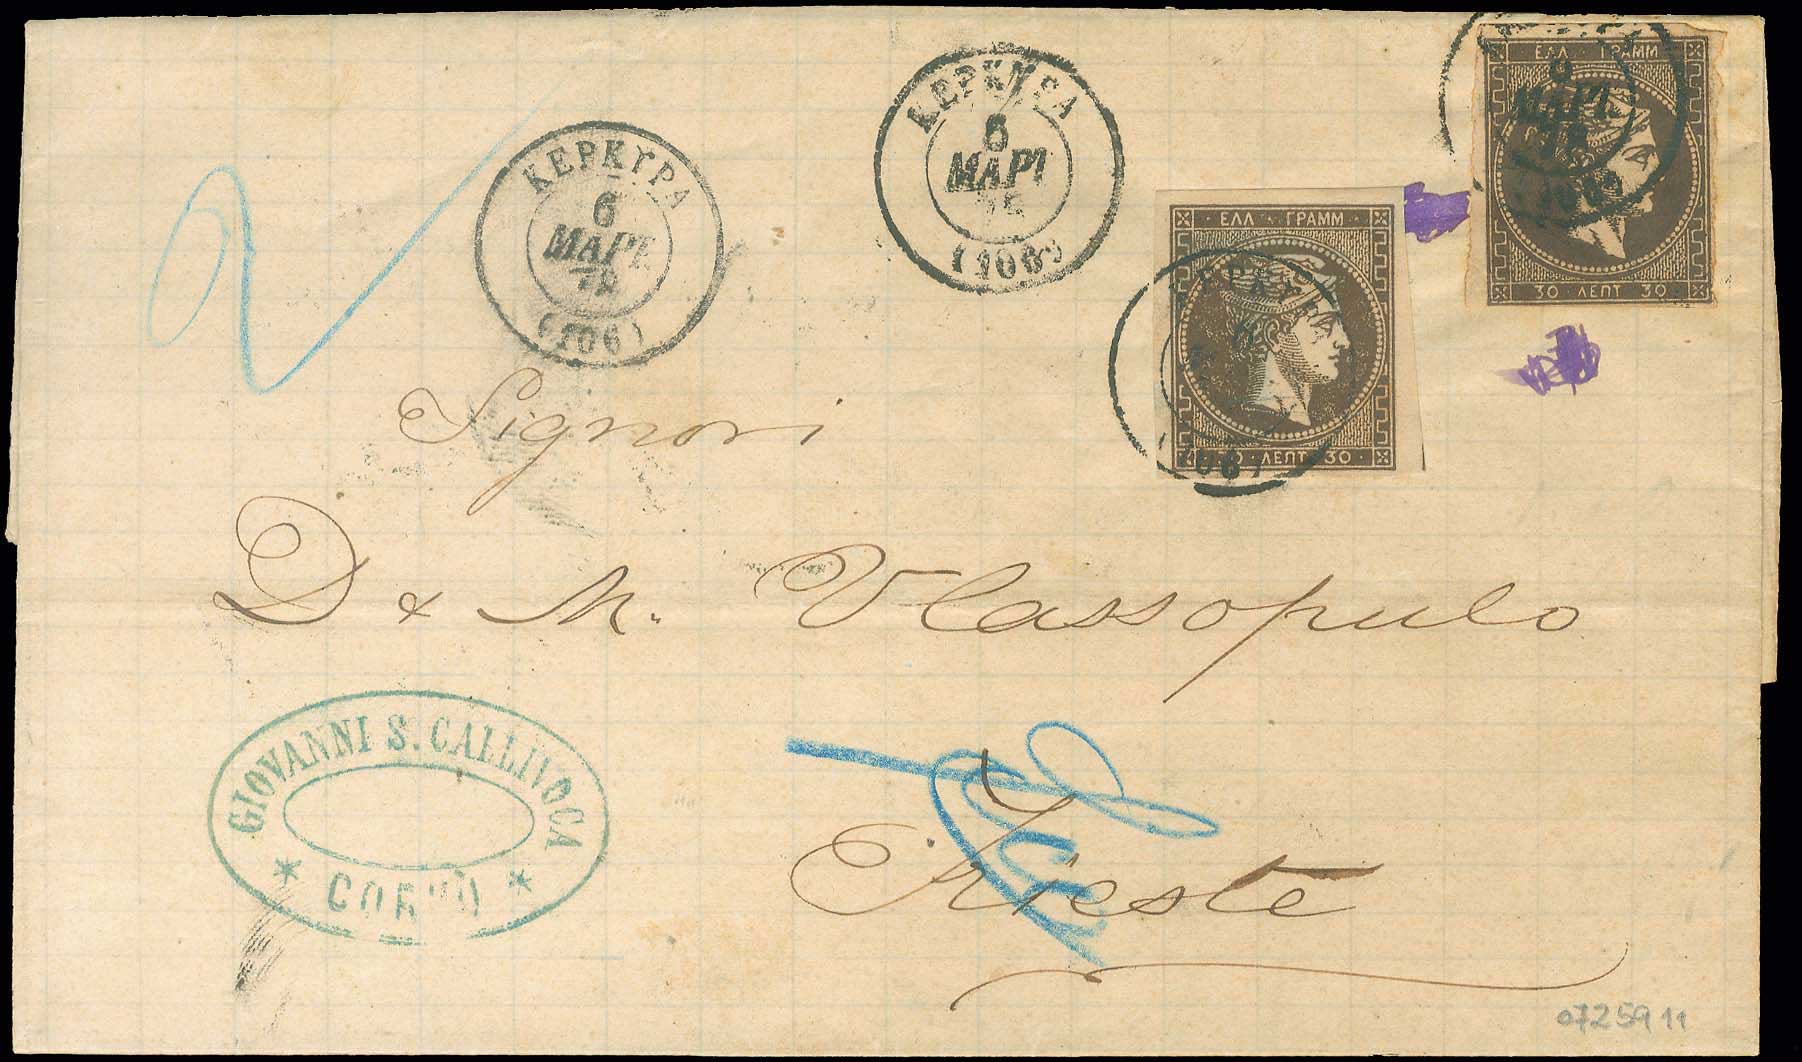 ΚΕΡΚΥΡΑ
6
ΜΑΡΤ
78
(106)
ΚΕΡΚΥΡΑ
6
ΜΑΡΤ
(106)
ΕΛΛ · ΓΡΑΜΜ
6
ΜΑΡΤ
30 · ΛΕΠΤ · 30
ΕΛΛ · ΓΡΑΜΜ
30 · ΛΕΠΤ · 30
(106)
2
Signori
D & M. Vlassopulo
Trieste
GIOVANNI S. CALLIVOCA
* CORFÙ *
0725911